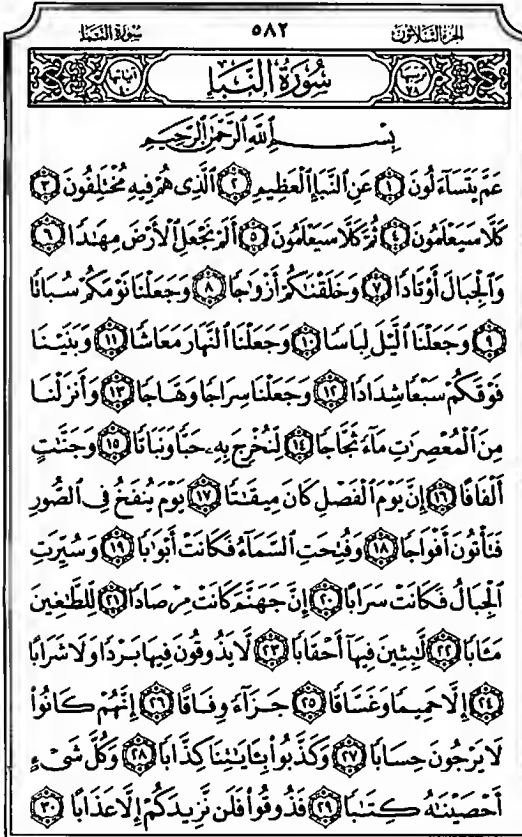 سُورَةُ النَّبَإِ ٥٨٢ الجُزْءُ الثَّلَاثُونَ
سُورَةُ النَّبَإِ
بِسْمِ اللَّهِ الرَّحْمَٰنِ الرَّحِيمِ
عَمَّ يَتَسَآءَلُونَ ١ عَنِ ٱلنَّبَإِ ٱلْعَظِيمِ ٢ ٱلَّذِى هُمْ فِيهِ مُخْتَلِفُونَ ٣
كَلَّا سَيَعْلَمُونَ ٤ ثُمَّ كَلَّا سَيَعْلَمُونَ ٥ أَلَمْ نَجْعَلِ ٱلْأَرْضَ مِهَٰدًا ٦
وَٱلْجِبَالَ أَوْتَادًا ٧ وَخَلَقْنَٰكُمْ أَزْوَٰجًا ٨ وَجَعَلْنَا نَوْمَكُمْ سُبَاتًا
٩ وَجَعَلْنَا ٱلَّيْلَ لِبَاسًا ١٠ وَجَعَلْنَا ٱلنَّهَارَ مَعَاشًا ١١ وَبَنَيْنَا
فَوْقَكُمْ سَبْعًا شِدَادًا ١٢ وَجَعَلْنَا سِرَاجًا وَهَّاجًا ١٣ وَأَنزَلْنَا
مِنَ ٱلْمُعْصِرَٰتِ مَآءً ثَجَّاجًا ١٤ لِّنُخْرِجَ بِهِۦ حَبًّا وَنَبَاتًا ١٥ وَجَنَّٰتٍ
أَلْفَافًا ١٦ إِنَّ يَوْمَ ٱلْفَصْلِ كَانَ مِيقَٰتًا ١٧ يَوْمَ يُنفَخُ فِى ٱلصُّورِ
فَتَأْتُونَ أَفْوَاجًا ١٨ وَفُتِحَتِ ٱلسَّمَآءُ فَكَانَتْ أَبْوَٰبًا ١٩ وَسُيِّرَتِ
ٱلْجِبَالُ فَكَانَتْ سَرَابًا ٢٠ إِنَّ جَهَنَّمَ كَانَتْ مِرْصَادًا ٢١ لِّلطَّٰغِينَ
مَـَٔابًا ٢٢ لَّٰبِثِينَ فِيهَآ أَحْقَابًا ٢٣ لَّا يَذُوقُونَ فِيهَا بَرْدًا وَلَا شَرَابًا
٢٤ إِلَّا حَمِيمًا وَغَسَّاقًا ٢٥ جَزَآءً وِفَاقًا ٢٦ إِنَّهُمْ كَانُوا۟
لَا يَرْجُونَ حِسَابًا ٢٧ وَكَذَّبُوا۟ بِـَٔايَٰتِنَا كِذَّابًا ٢٨ وَكُلَّ شَىْءٍ
أَحْصَيْنَٰهُ كِتَٰبًا ٢٩ فَذُوقُوا۟ فَلَن نَّزِيدَكُمْ إِلَّا عَذَابًا ٣٠